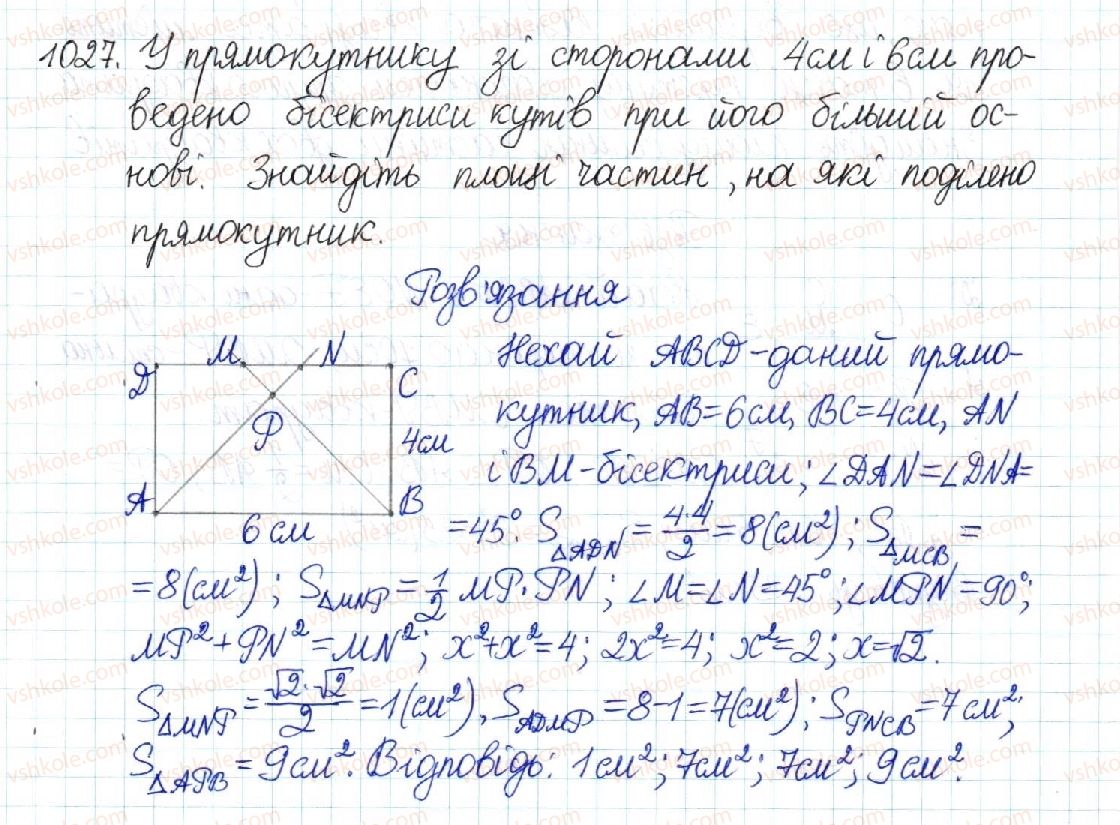 1027. У прямокутнику зі сторонами 4см і 6см про-
ведено бісектриси кутів при його більшій ос-
нові. Знайдіть площі частин, на які поділено
прямокутник.
Розв'язання
D M N C
P
4см
A B
6 см
Нехай ABCD - даний прямо-
кутник, AB=6см, BC=4см, AN
і BM - бісектриси; ∠DAN=∠DNA=
=45°. S△ADN = 4·4/2 = 8(см²); S△MCB =
=8(см²); S△MNP = 1/2 MP·PN; ∠M=∠N=45°; ∠MPN=90°;
MP²+PN²=MN²; x²+x²=4; 2x²=4; x²=2; x=√2.
S△MNP = √2·√2/2 = 1(см²), SADMP = 8-1=7(см²); SPNCB = 7см²;
S△APB = 9см². Відповідь: 1см²; 7см²; 7см²; 9см².
vshkole.com